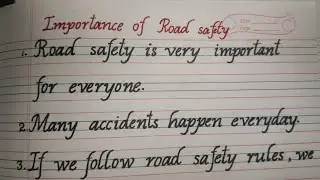 Importance of Road safety
1. Road safety is very important
for everyone.
2. Many accidents happen everyday.
3. If we follow road safety rules, we